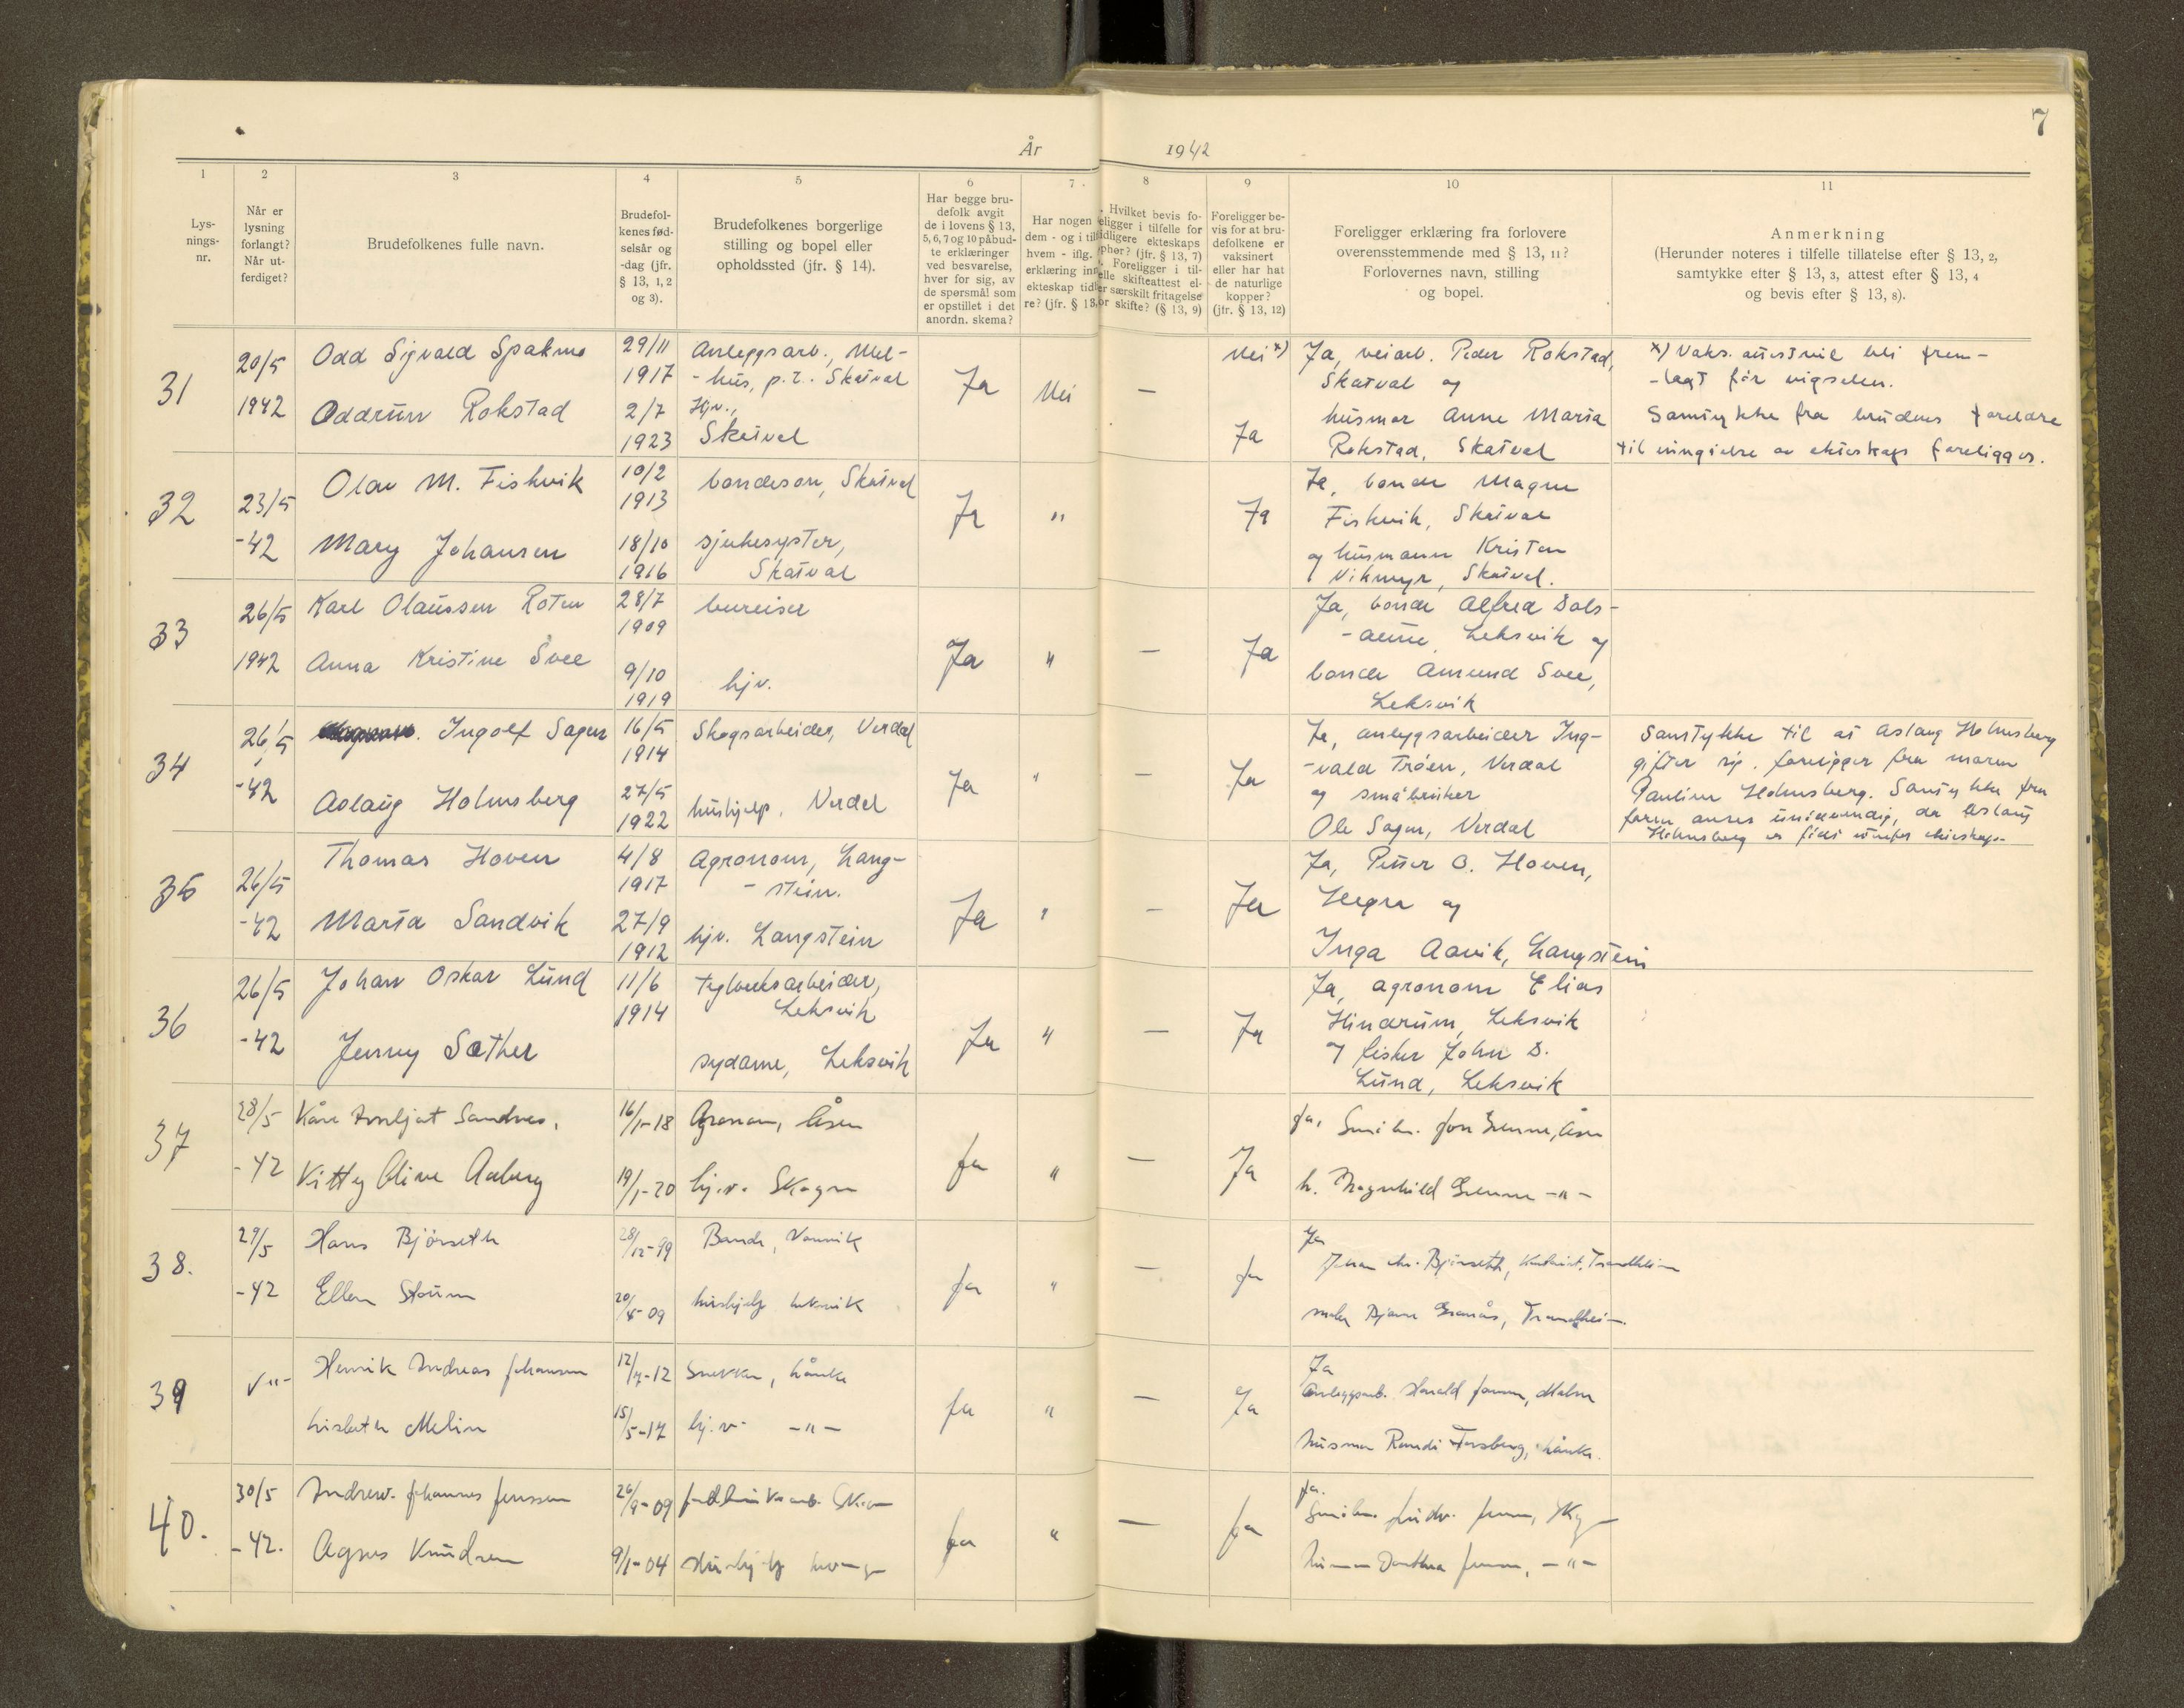 7
År 1942
1 2 3 4 5 6 7 8 9 10 11
Lys-
nings-
nr.
Når er
lysning
forlangt?
Når ut-
ferdiget?
Brudefolkenes fulle navn.
Brudefol-
kenes fød-
selsår og
-dag (jfr.
§ 13, 1, 2
og 3).
Brudefolkenes borgerlige
stilling og bopel eller
opholdssted (jfr. § 14).
Har begge bru-
defolk avgit
de i lovens § 13,
5, 6, 7 og 10 påbud-
te erklæringer
ved besvarelse,
hver for sig, av
de spørsmål som
er opstillet i det
anordn. skema?
Har nogen
dem - og i til
hvem - iflg.
erklæring inn
ekteskap tid
re? (jfr. § 13,
Hvilket bevis fo-
religger i tilfelle for
tidligere ekteskaps
ophør? (jfr. § 13, 7)
Foreligger i til-
elle skifteattest el-
er særskilt fritagelse
or skifte? (§ 13, 9)
Foreligger be-
vis for at bru-
defolkene er
vaksinert
eller har hat
de naturlige
kopper?
(jfr. § 13, 12)
Foreligger erklæring fra forlovere
overensstemmende med § 13, 11?
Forlovernes navn, stilling
og bopel.
Anmerkning
(Herunder noteres i tilfelle tillatelse efter § 13, 2,
samtykke efter § 13, 3, attest efter § 13, 4
og bevis efter § 13, 8).
31
20/5
1942
Odd Sigvald Spakmo
Oddrun Rokstad
29/11
1917
2/7
1923
Anleggsarb., Mel-
-hus, p.t. Skatval
Hjv.,
Skatval
Ja
Nei
—
Nei x)
Ja
Ja, veiarb. Peder Rokstad,
Skatval og
husmor Anne Maria
Rokstad, Skatval
x) Vaks. attest vil bli frem-
-lagt før vigselen.
Samtykke fra brudens foreldre
til inngåelse av ekteskap foreligger.
32
23/5
-42
Olav M. Fiskvik
Mary Johansen
10/2
1913
18/10
1916
bondesøn, Skatval
sjukesyster,
Skatval
Ja
"
Ja
Ja, bonde Magne
Fiskvik, Skatval
og husmann Kristen
Vikmyr, Skatval.
33
26/5
1942
Karl Olaussen Roten
Anna Kristine Svee
28/7
1909
9/10
1919
bureiser
hjv.
Ja
"
—
Ja
Ja, bonde Alfred Dals-
-aune, Leksvik og
bonde Amund Svee,
Leksvik
34
26/5
-42
Ingolf Sagen
Aslaug Holmsberg
16/5
1914
27/5
1922
Skogsarbeider, Verdal
hushjelp, Verdal
Ja
"
—
Ja
Ja, anleggsarbeider Ing-
-vald Trøen, Verdal
og småbruker
Ole Sagen, Verdal
Samtykke til at Aslaug Holmsberg
gifter sig, foreligger fra moren
Pauline Holmsberg. Samtykke fra
faren anses unødvendig, da Aslaug
Holmsberg er født utenfor ekteskap.
35
26/5
-42
Thomas Hoven
Marta Sandvik
4/8
1917
27/9
1912
Agronom, Lang-
-stein.
hjv. Langstein
Ja
"
—
Ja
Ja, Petter O. Hoven,
Hegra og
Inga Aavik, Langstein
36
26/5
-42
Johan Oskar Lund
Jenny Sæther
11/6
1914
Teglverksarbeider,
Leksvik
sydame, Leksvik
Ja
"
—
Ja
Ja, agronom Elias
Hindrum, Leksvik
og fisker John D.
Lund, Leksvik
37
28/5
-42
Kåre Sandnes.
Kitty Oline Aaberg
16/1-18
19/1-20
Agronom, Åsen
hj.v. Skogn
Ja
"
—
Ja
Ja, Småbr. Jon Grenne, Åsen
h. Ragnhild Grenne -"-
38.
29/5
-42
Hans Bjørseth
Ellen Staum
28/12-99
20/4-09
Bonde, Vanvik
hushjelp Leksvik
Ja
"
—
Ja
Ja
Johan Chr. Bjørseth, Trondheim
maler Bjarne Granås, Trondheim.
39
-"-
Henrik Andreas Johansen
Lisbeth Melin
12/7-12
15/5-17
Snekker, Lånke
hj.v. -"-
Ja
"
—
Ja
Ja
Anleggsarb. Harald Jensen, Malm
husmor Randi Forsberg, Lånke.
40.
30/5
-42.
Andrew Johannes Jenssen
Agnes Knudsen
26/9-09
9/1-04
Hushjelp
Ja
"
—
Ja
Ja.
-"-